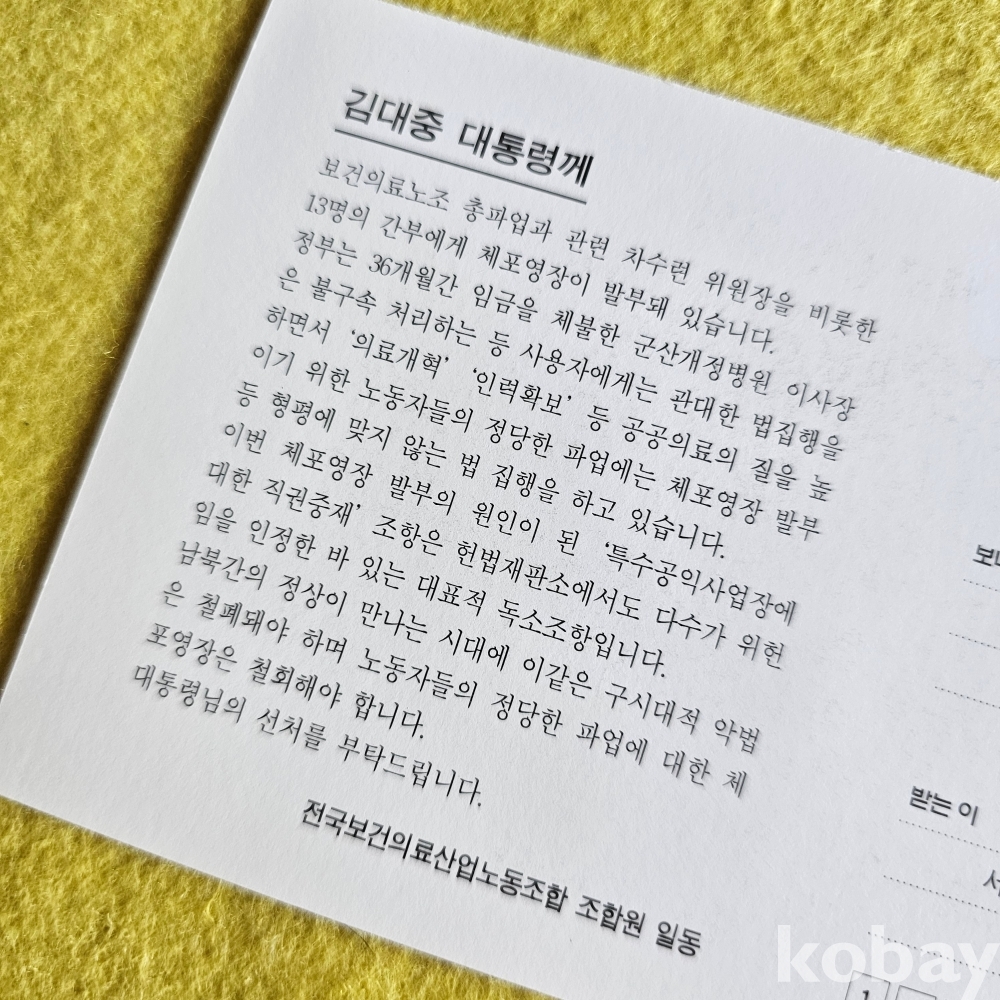 김대중 대통령께
보건의료노조 총파업과 관련 차수련 위원장을 비롯한
13명의 간부에게 체포영장이 발부돼 있습니다.
정부는 36개월간 임금을 체불한 군산개정병원 이사장
은 불구속 처리하는 등 사용자에게는 관대한 법집행을
하면서 '의료개혁' '인력확보' 등 공공의료의 질을 높
이기 위한 노동자들의 정당한 파업에는 체포영장 발부
등 형평에 맞지 않는 법 집행을 하고 있습니다.
이번 체포영장 발부의 원인이 된 '특수공익사업장에
대한 직권중재' 조항은 헌법재판소에서도 다수가 위헌
임을 인정한 바 있는 대표적 독소조항입니다.
남북간의 정상이 만나는 시대에 이같은 구시대적 악법
은 철폐돼야 하며 노동자들의 정당한 파업에 대한 체
포영장은 철회해야 합니다.
대통령님의 선처를 부탁드립니다.
전국보건의료산업노동조합 조합원 일동
받는 이
1
kobay